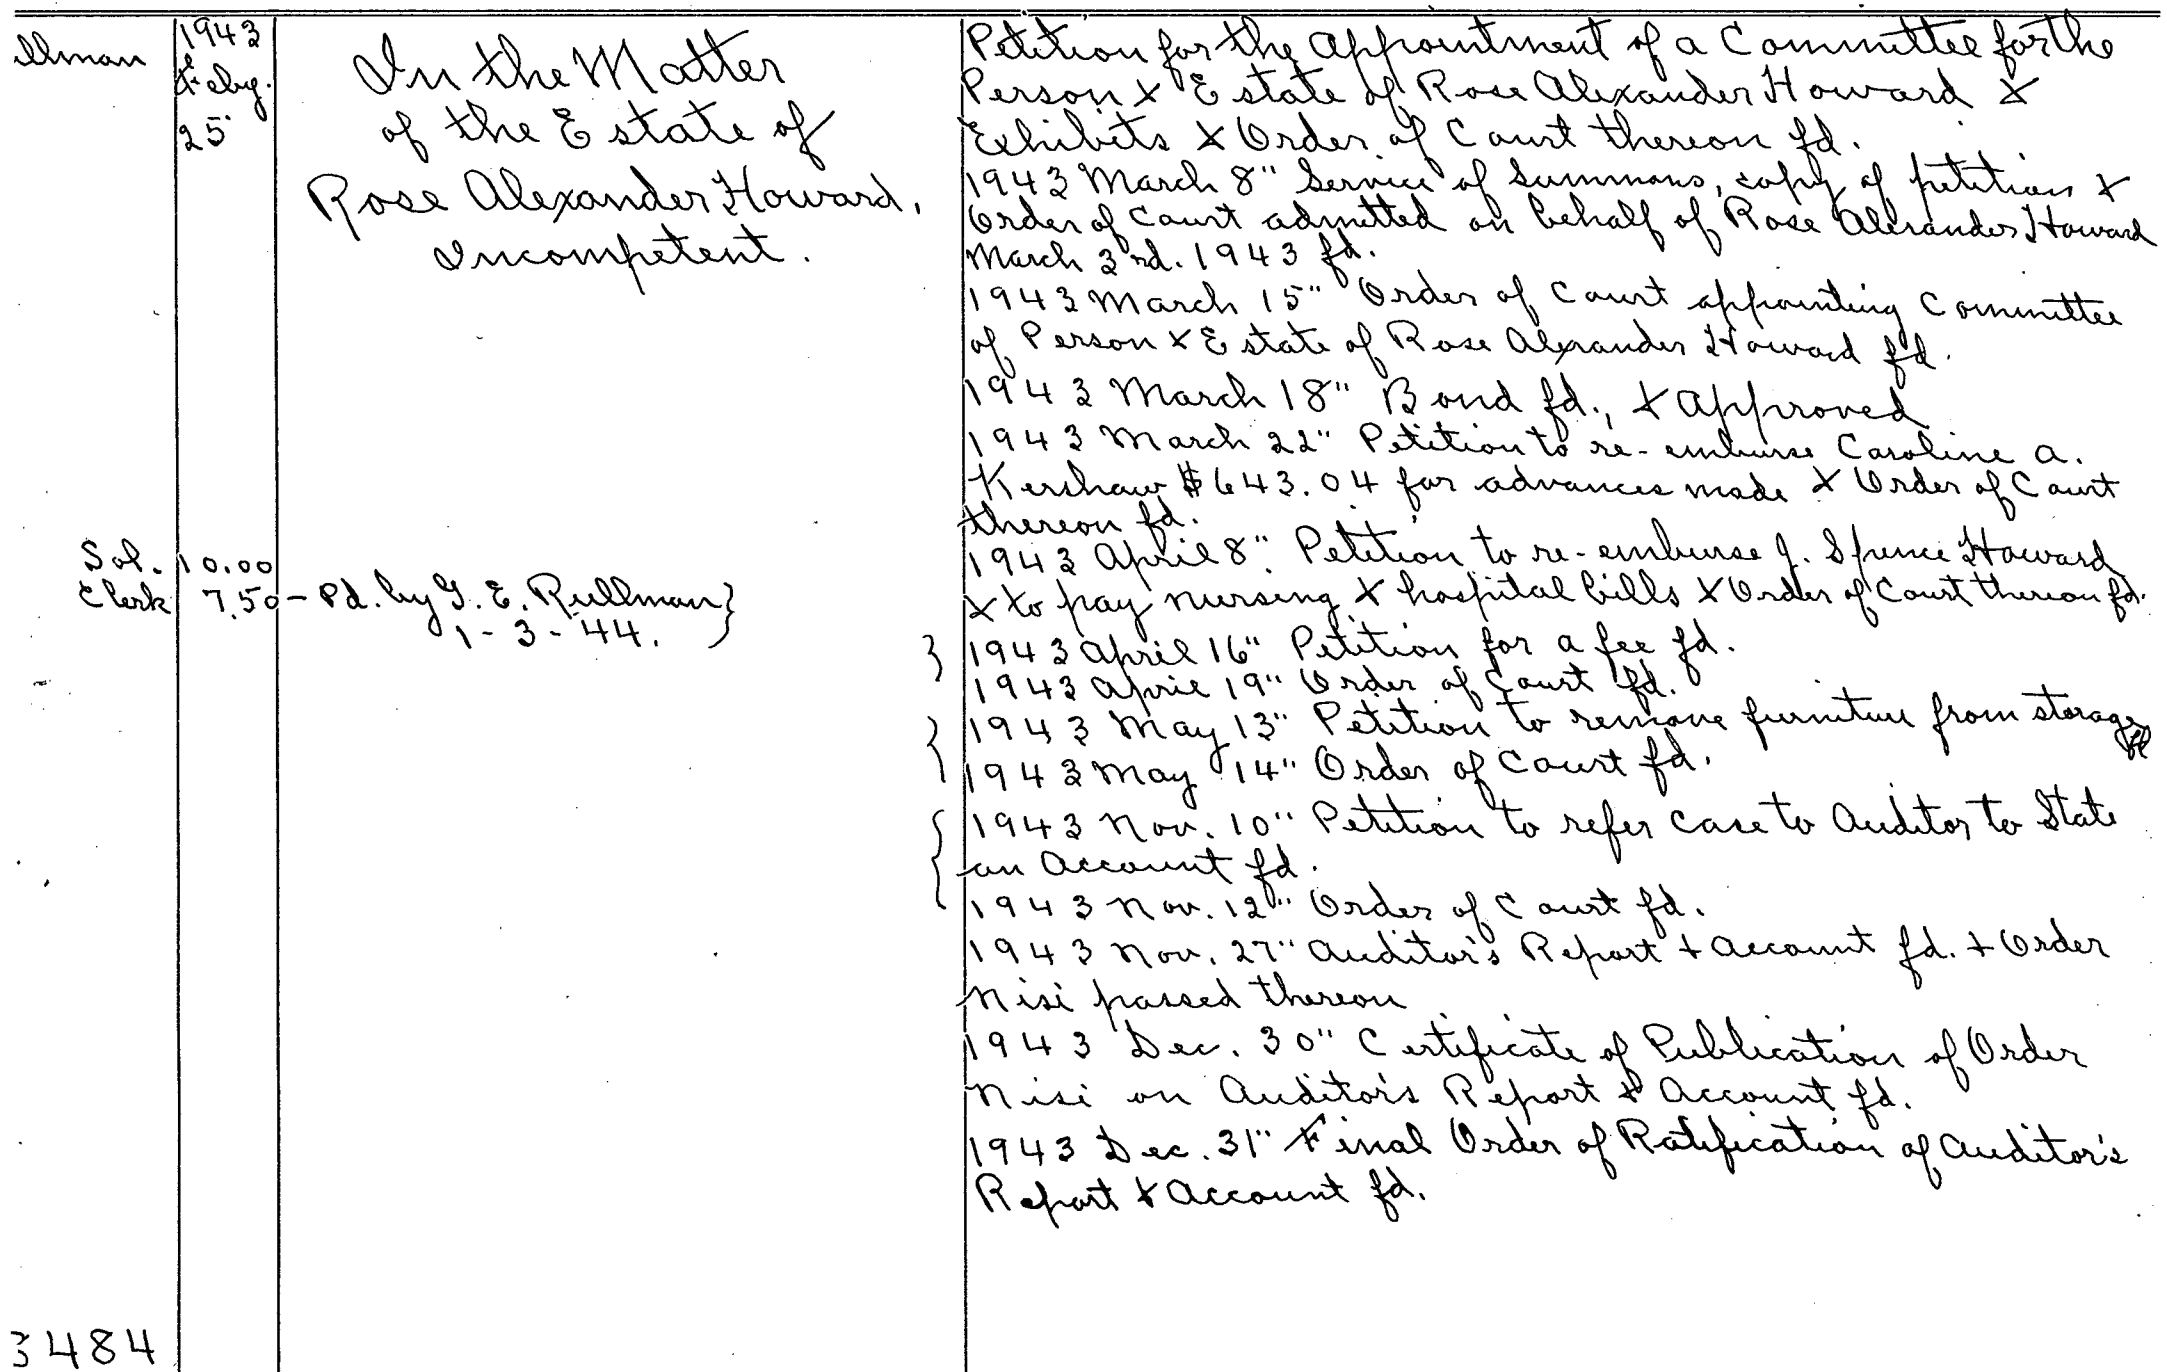 llman
1943
Feby.
25
In the Matter
of the Estate of
Rose Alexander Howard,
Incompetent.
Sol. 10.00
Clerk 7.50 - Pd. by G. E. Rullman }
1-3-44.
3484
Petition for the Appointment of a Committee for the
Person & Estate of Rose Alexander Howard &
Exhibits & Order of Court thereon fd.
1943 March 8" Service of Summons, copy of petition &
Order of Court admitted on behalf of Rose Alexander Howard
March 3rd. 1943 fd.
1943 March 15" Order of Court appointing Committee
of Person & Estate of Rose Alexander Howard fd.
1943 March 18" Bond fd., & Approved
1943 March 22" Petition to re-emburse Caroline A.
Kershaw $643.04 for advances made & Order of Court
thereon fd.
1943 April 8". Petition to re-emburse J. Spence Howard
& to pay nursing & hospital bills & Order of Court thereon fd.
1943 April 16" Petition for a fee fd.
1943 April 19" Order of Court fd.
1943 May 13" Petition to remove furniture from storage
1943 May 14" Order of Court fd.
1943 Nov. 10" Petition to refer case to Auditor to State
an Account fd.
1943 Nov. 12" Order of Court fd.
1943 Nov. 27" Auditor's Report + Account fd. + Order
Nisi passed thereon
1943 Dec. 30" Certificate of Publication of Order
Nisi on Auditor's Report & Account fd.
1943 Dec. 31" Final Order of Ratification of Auditor's
Report & Account fd.